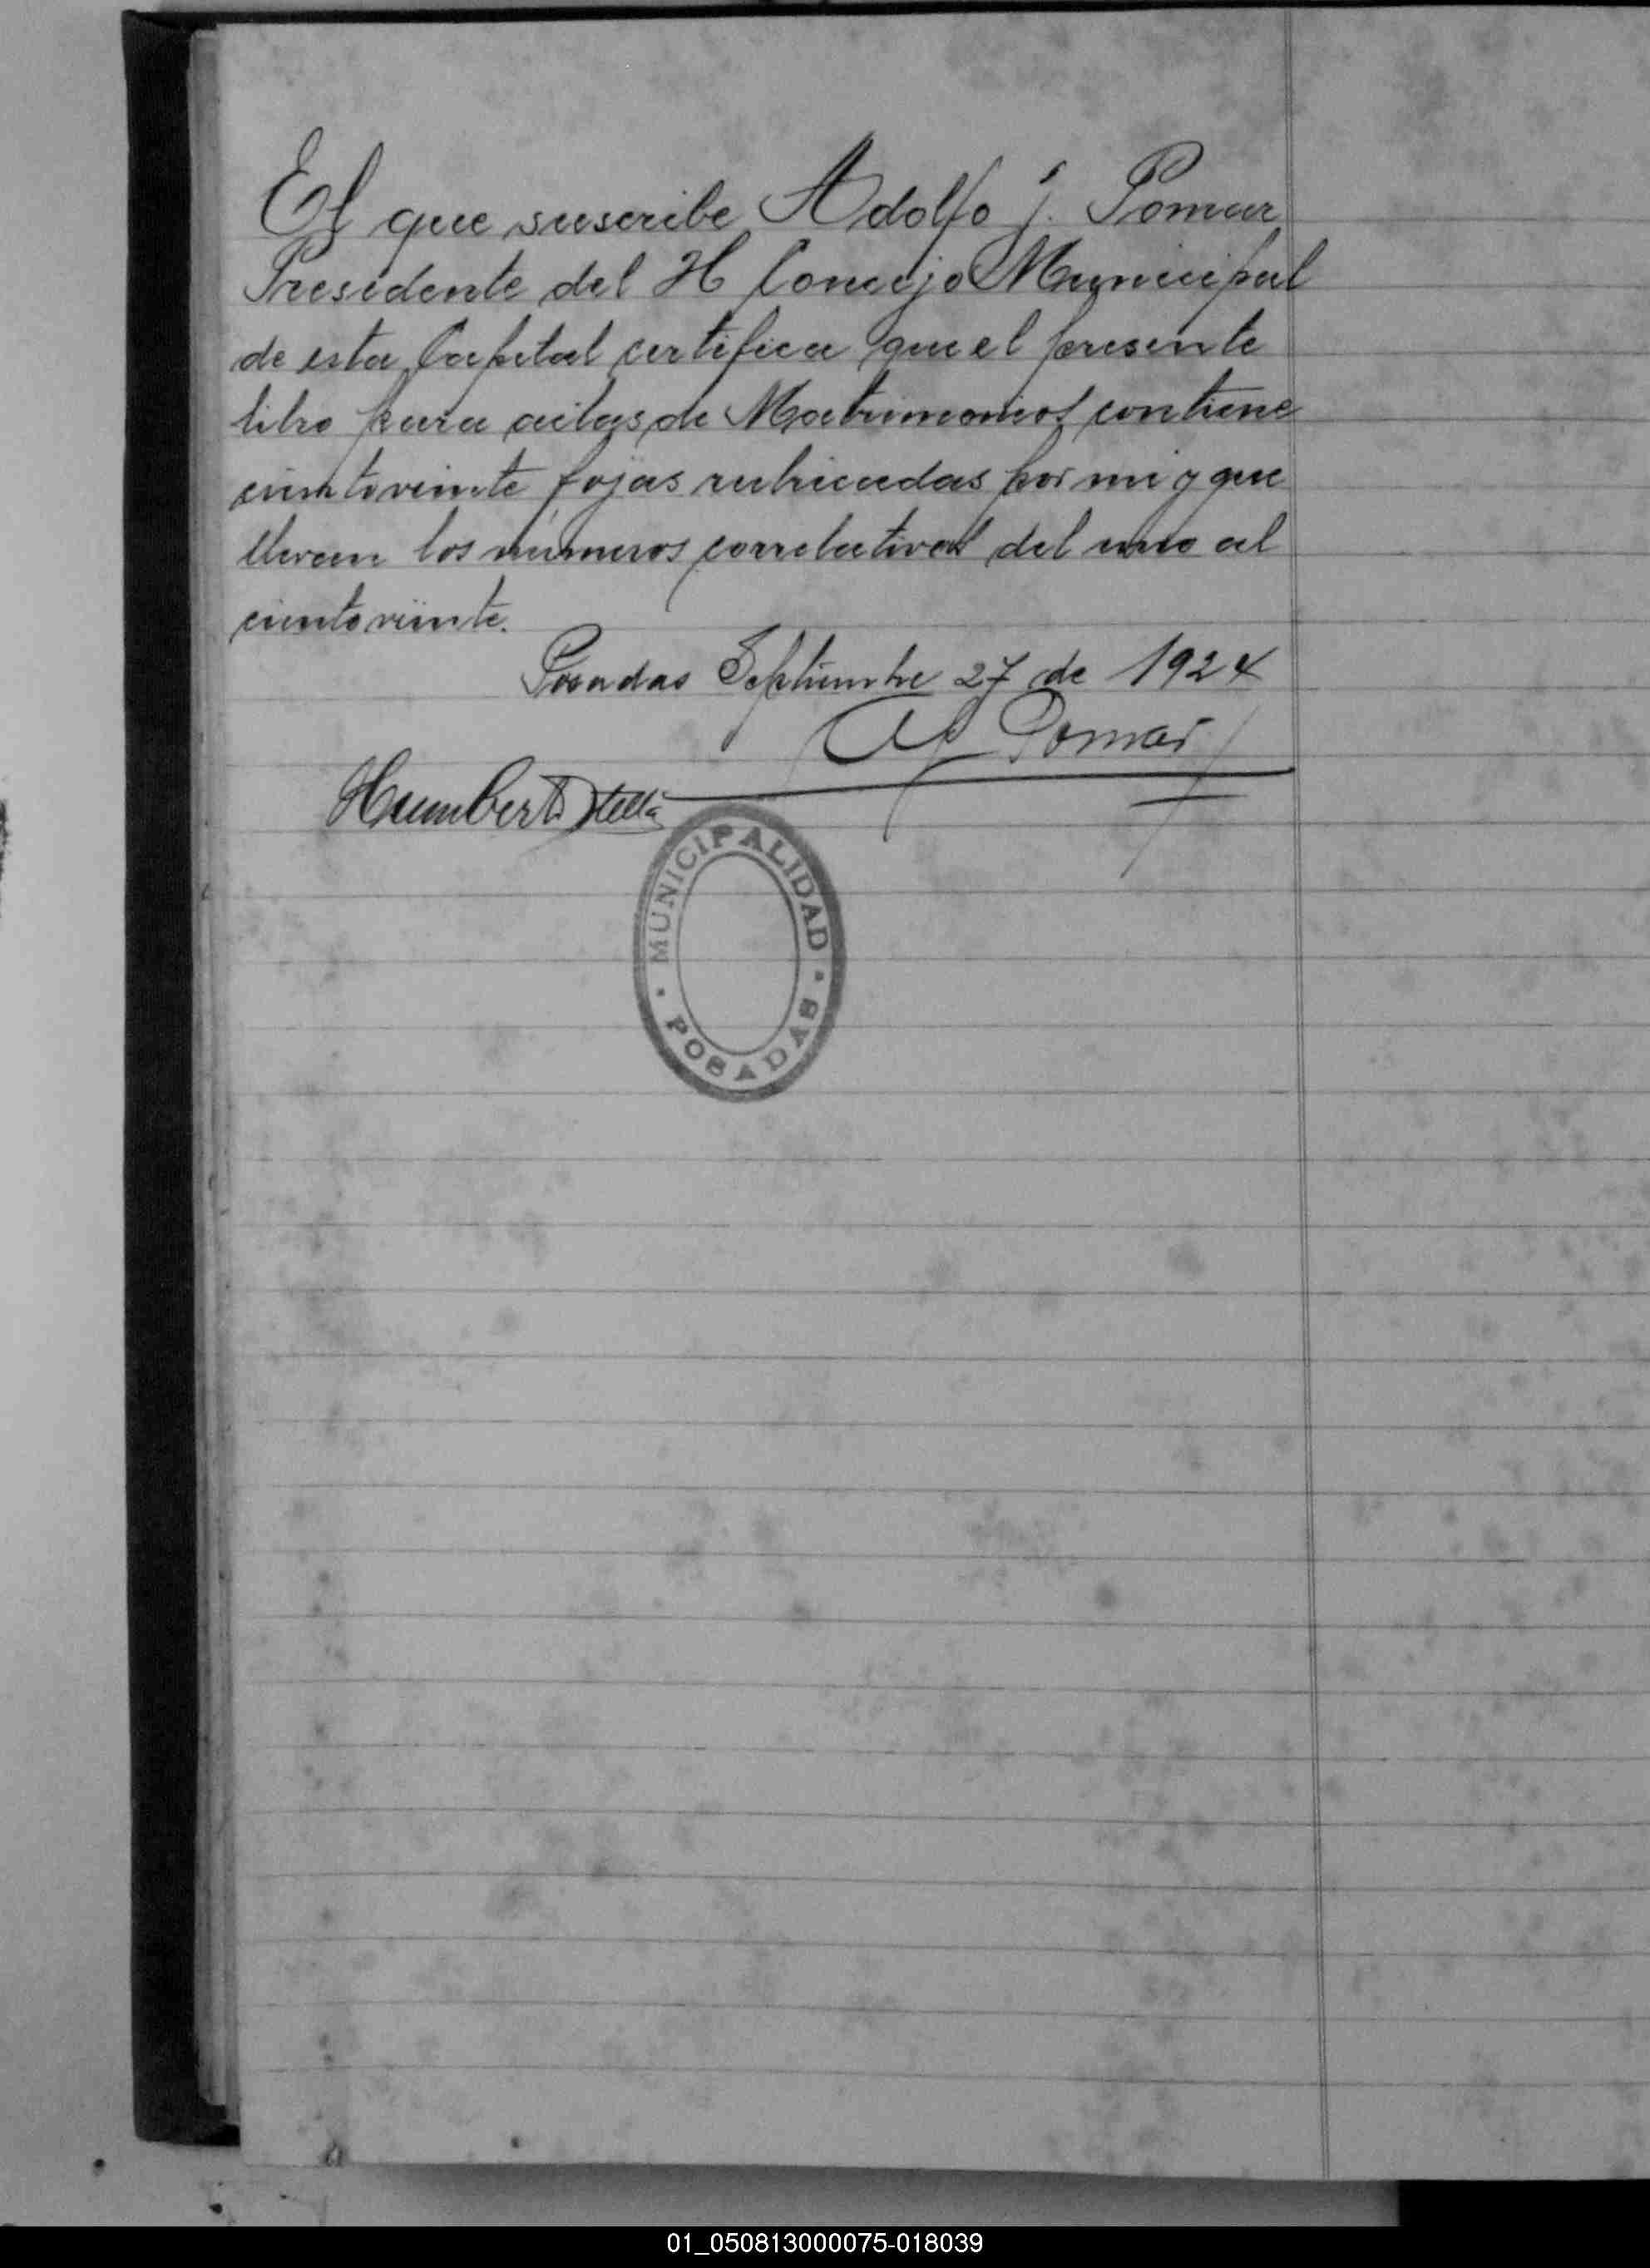 El que suscribe Adolfo J. Pomar
Presidente del H Concejo Municipal
de esta Capital certifica que el presente
libro para actas de Matrimonios contiene
ciento veinte fojas rubricadas por mi y que
llevan los números correlativos del uno al
ciento veinte.
Posadas Septiembre 27 de 1924
AJ Pomar
Humberto Stella
MUNICIPALIDAD
POSADAS
01_050813000075-018039